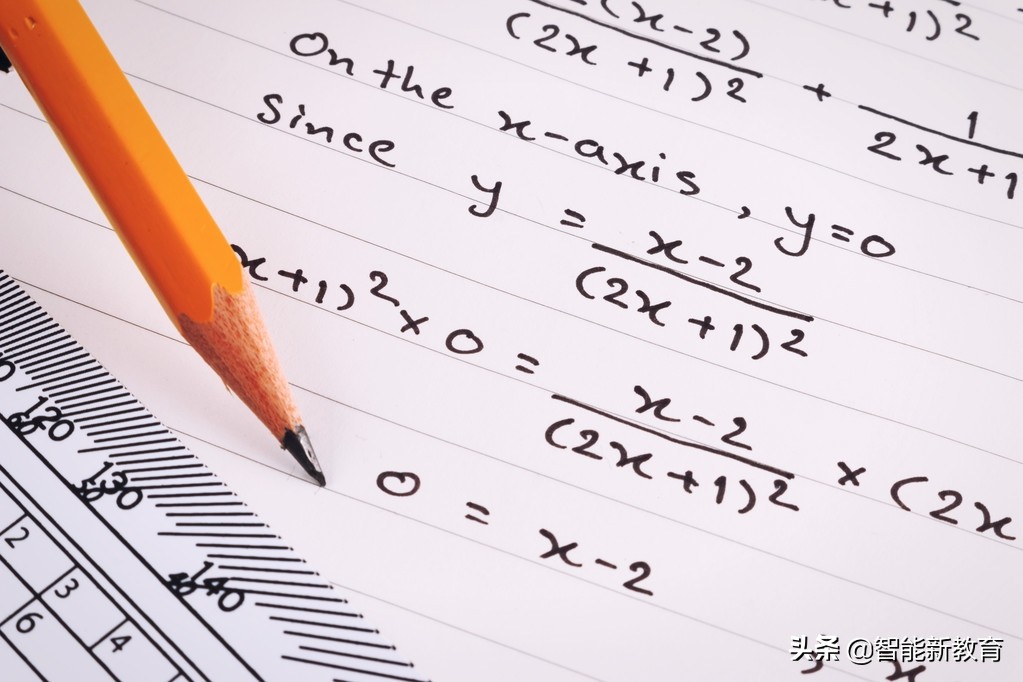 (x-2)
(2x+1)² + 1
2x+1
x+1)²
On the x-axis, y=0
Since y = x-2
(2x+1)²
x+1)² × 0 = x-2
(2x+1)² × (2x
0 = x-2
, x
120
60
130
50
140
40
2
3
4
6
头条 @智能新教育